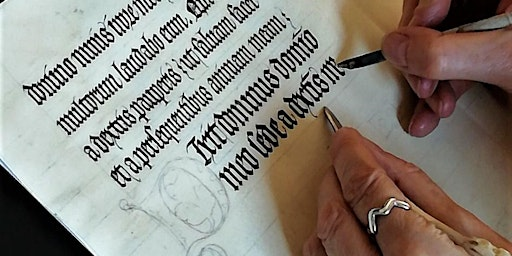 domino nimis
multorum laudabo eum.
a dextris pauperis ut salvam
et a persequentibus animam meam
dominus domino
meo sede a dextris m